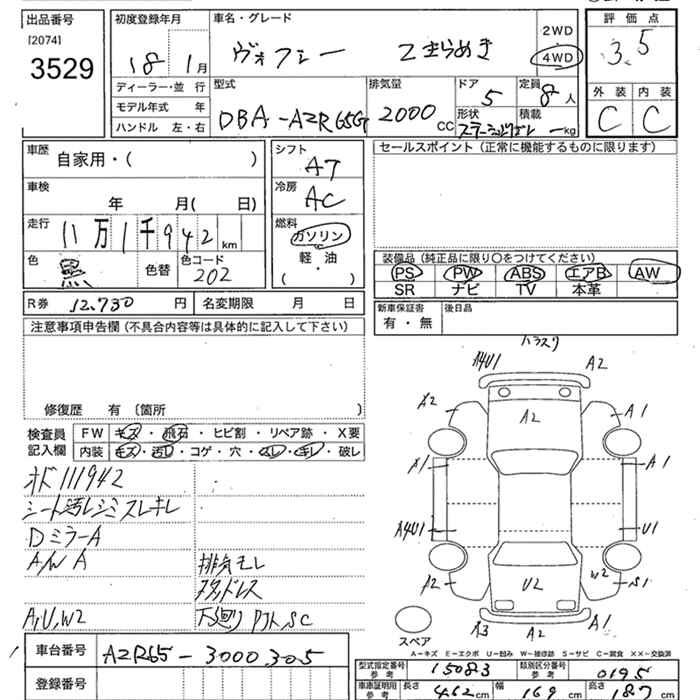 出品番号 初度登録年月 車名・グレード 評価点
[2074] 2WD
3529 18 1月 ヴォクシー Z きらめき 4WD 3.5
ディーラー・並行 型式 排気量 ドア 定員 外装 内装
モデル年式 年 DBA-AZR65G 2000 CC 5 8 人 C C
ハンドル 左・右 形状 積載 kg
車歴 自家用・( ) シフト AT セールスポイント (正常に機能するものに限ります)
車検 年 月( 日) 冷房 AC
走行 11万1千942 km 燃料 ガソリン
色 黒 色替 色コード 202 軽・油 ( )
装備品 (純正品に限り〇をつけてください)
PS PW ABS エアB AW
SR ナビ TV 本革
R券 12,730 円 名変期限 月 日 新車保証書 有・無 後日品
注意事項申告欄 (不具合内容等は具体的に記入して下さい)
修復歴 有 (箇所 )
検査員 FW キズ・飛石・ヒビ割・リペア跡・X要
記入欄 内装 キズ・汚レ・コゲ・穴・スレ・キレ・破レ
メド 111942
シート汚レシミスレキレ
Dミラー A
A/W A 排気モレ
A,U,W2 下廻り
車台番号 AZR65-3000305
登録番号
A4U1 A2
A2 A2 A1
A1 A1
A4U1 U1
A2 U2 W2 S1
A3 A2 A1
スペア
A=キズ E=エクボ U=凹み W=補修跡 S=サビ C=腐食 XX=交換済
型式指定番号 参考 15083 類別区分番号 参考 0195
車庫証明用 参考 長さ 462 cm 幅 169 cm 高さ 187 cm